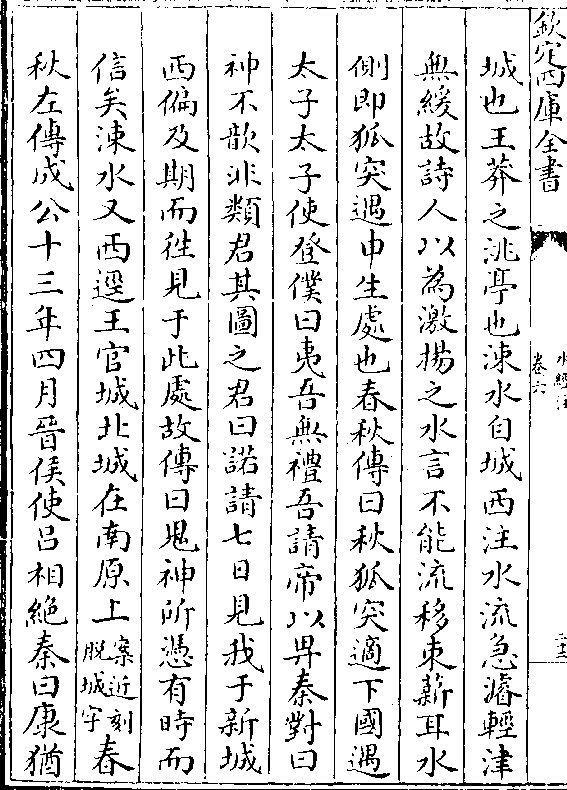 欽定四庫全書
水經注
卷六
城也王莽之洮亭也涑水自城西注水流急濬輕津
無緩故詩人以為激揚之水言不能流移束薪耳水
側即狐突遇申生處也春秋傳曰秋狐突適下國遇
太子太子使登僕曰夷吾無禮吾請帝以畀秦對曰
神不歆非類君其圖之君曰諾請七日見我于新城
西偏及期而徃見于此處故傳曰鬼神所憑有時而
信矣涑水又西逕王官城北城在南原上案近刻脱城字春
秋左傳成公十三年四月晉侯使呂相絶秦曰康猶